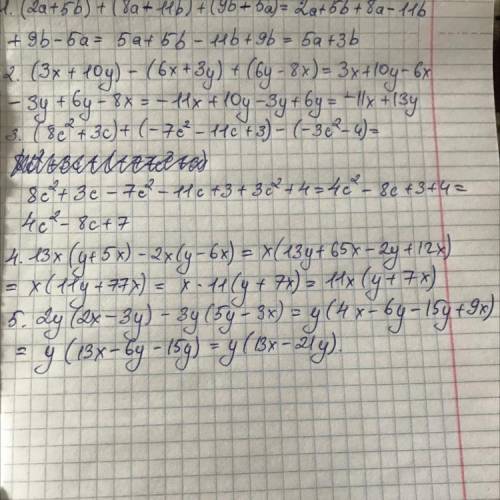 1. (2a+5b) + (8a-11b) + (9b-5a) = 2a+5b+8a-11b
+9b-5a = 5a+5b-11b+9b = 5a+3b
2. (3x+10y) - (6x+3y) + (6y-8x) = 3x+10y-6x
-3y+6y-8x = -11x+10y-3y+6y = -11x+13y
3. (8c²+3c)+(-7c²-11c+3)-(-3c²-4)=
8c²+3c-7c²-11c+3+3c²+4=4c²-8c+3+4=
4c²-8c+7
4. 13x(y+5x)-2x(y-6x)=x(13y+65x-2y+12x)
= x(11y+77x) = x·11(y+7x)=11x(y+7x)
5. 2y(2x-3y)-3y(5y-3x)=y(4x-6y-15y+9x)
= y(13x-6y-15y)=y(13x-21y).